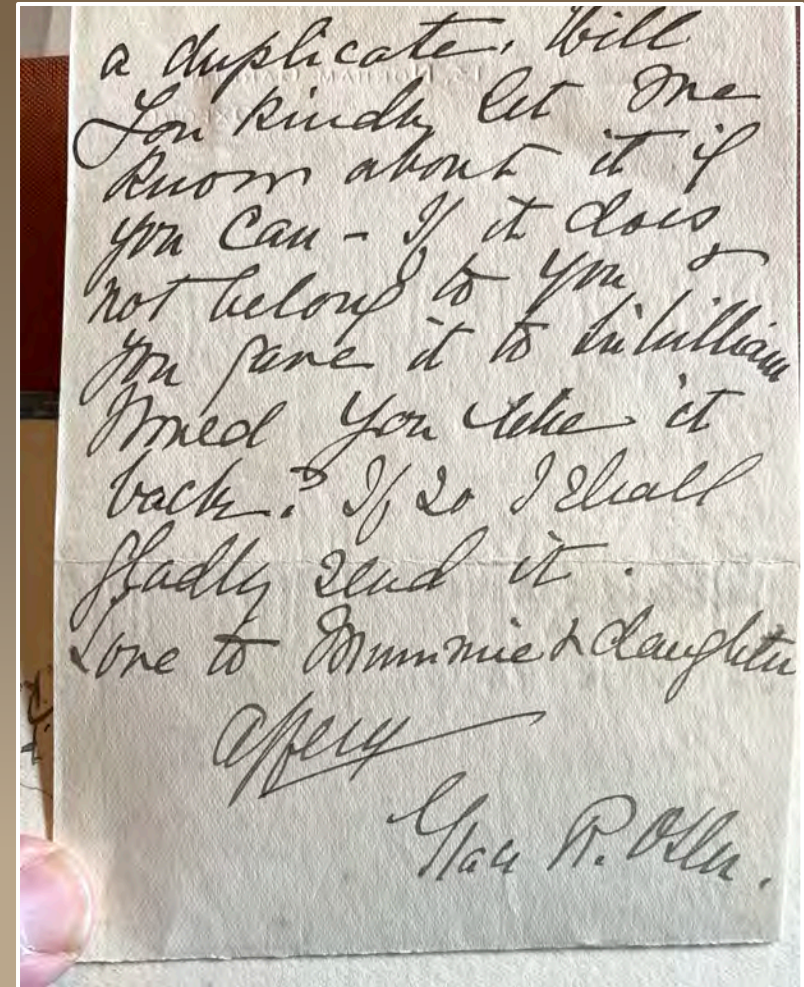 a duplicate. Will
you kindly let me
know about it if
you can - If it does
not belong to you &
you gave it to Sir William
would you like it
back? If so I shall
gladly send it.
Love to Mummie & daughter
affecly
Grace R. Osler.